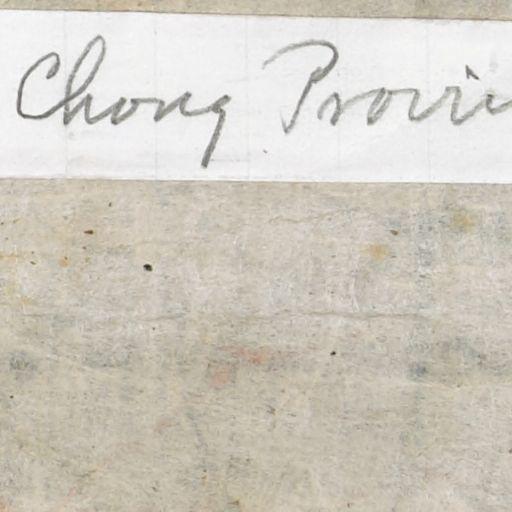 Chong Provin